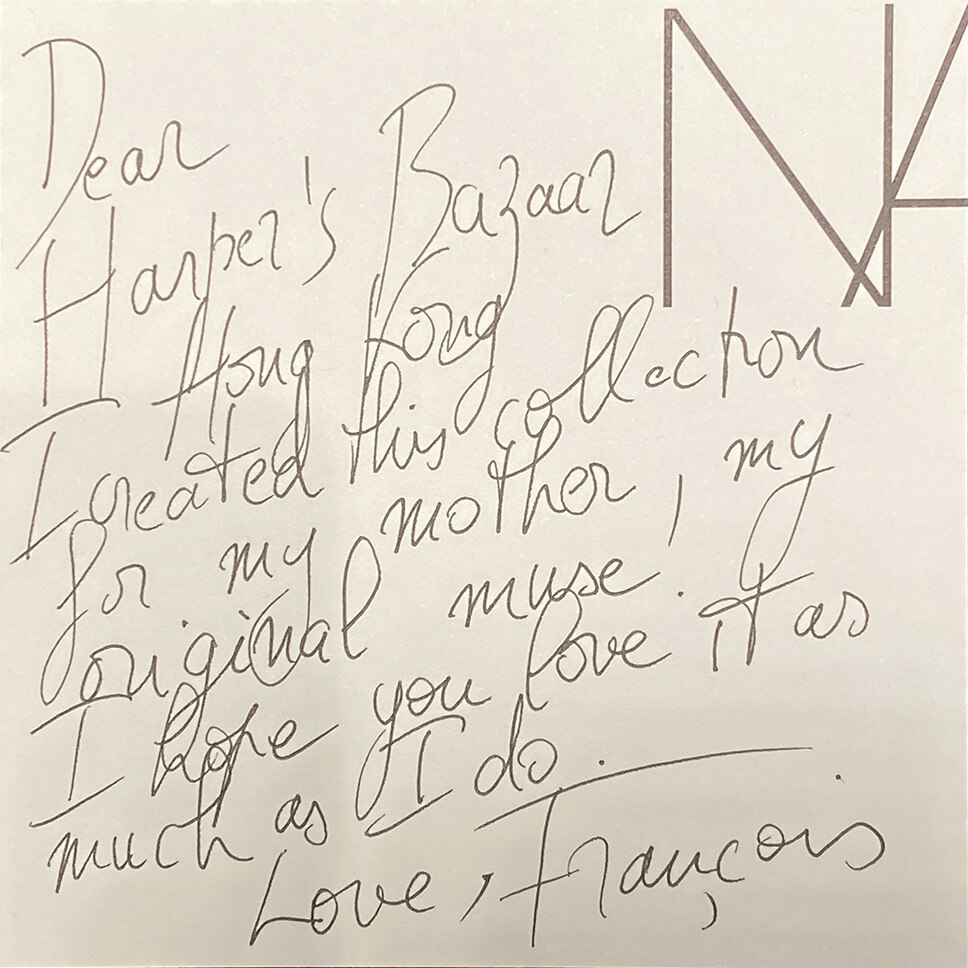 NA
Dear
Harper's Bazaar
Hong Kong
I created this collection
for my mother, my
original muse.
I hope you love it as
much as I do.
Love, François